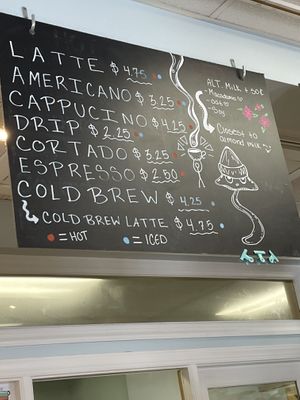 LATTE $4.75
AMERICANO $3.25
CAPPUCINO $4.25
DRIP $2.25
CORTADO $3.25
ESPRESSO $2.50
COLD BREW $4.25
COLD BREW LATTE $4.75
= HOT = ICED
ALT. MILK + .50¢
- Macadamia
- Oat
- Soy
Closest to
almond milk